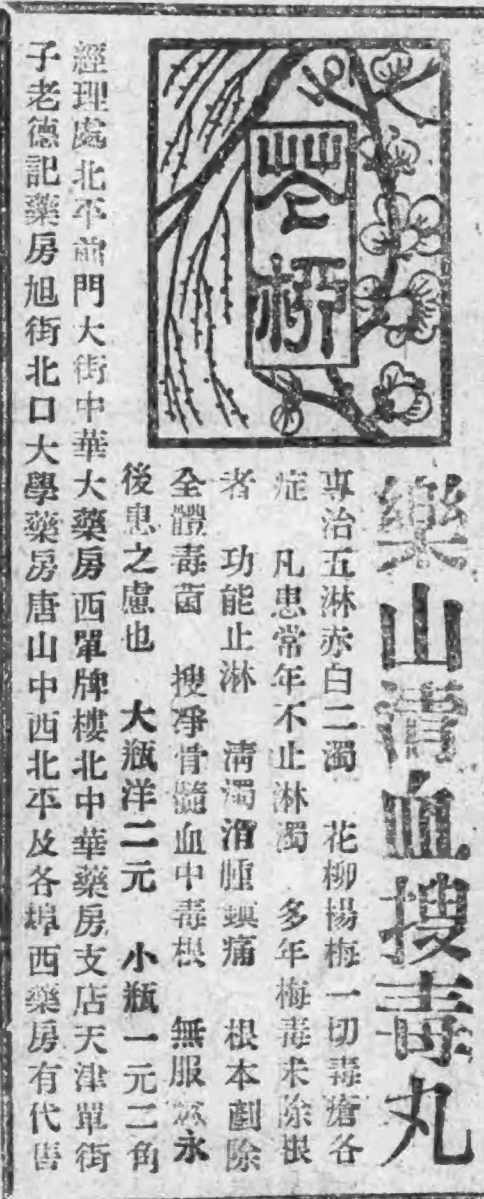 樂山清血搜毒丸
專治五淋赤白二濁　花柳楊梅一切毒瘡各
症　凡患常年不止淋濁　多年梅毒未除根
者　功能止淋　清濁消腫鎮痛　根本剷除
全體毒菌　搜凈骨髓血中毒根　無服永
後患之慮也　大瓶洋二元　小瓶一元二角
經理處北平前門大街中華大藥房西單牌樓北中華藥房支店天津單街
子老德記藥房旭街北口大學藥房唐山中西北平及各埠西藥房有代售
花柳